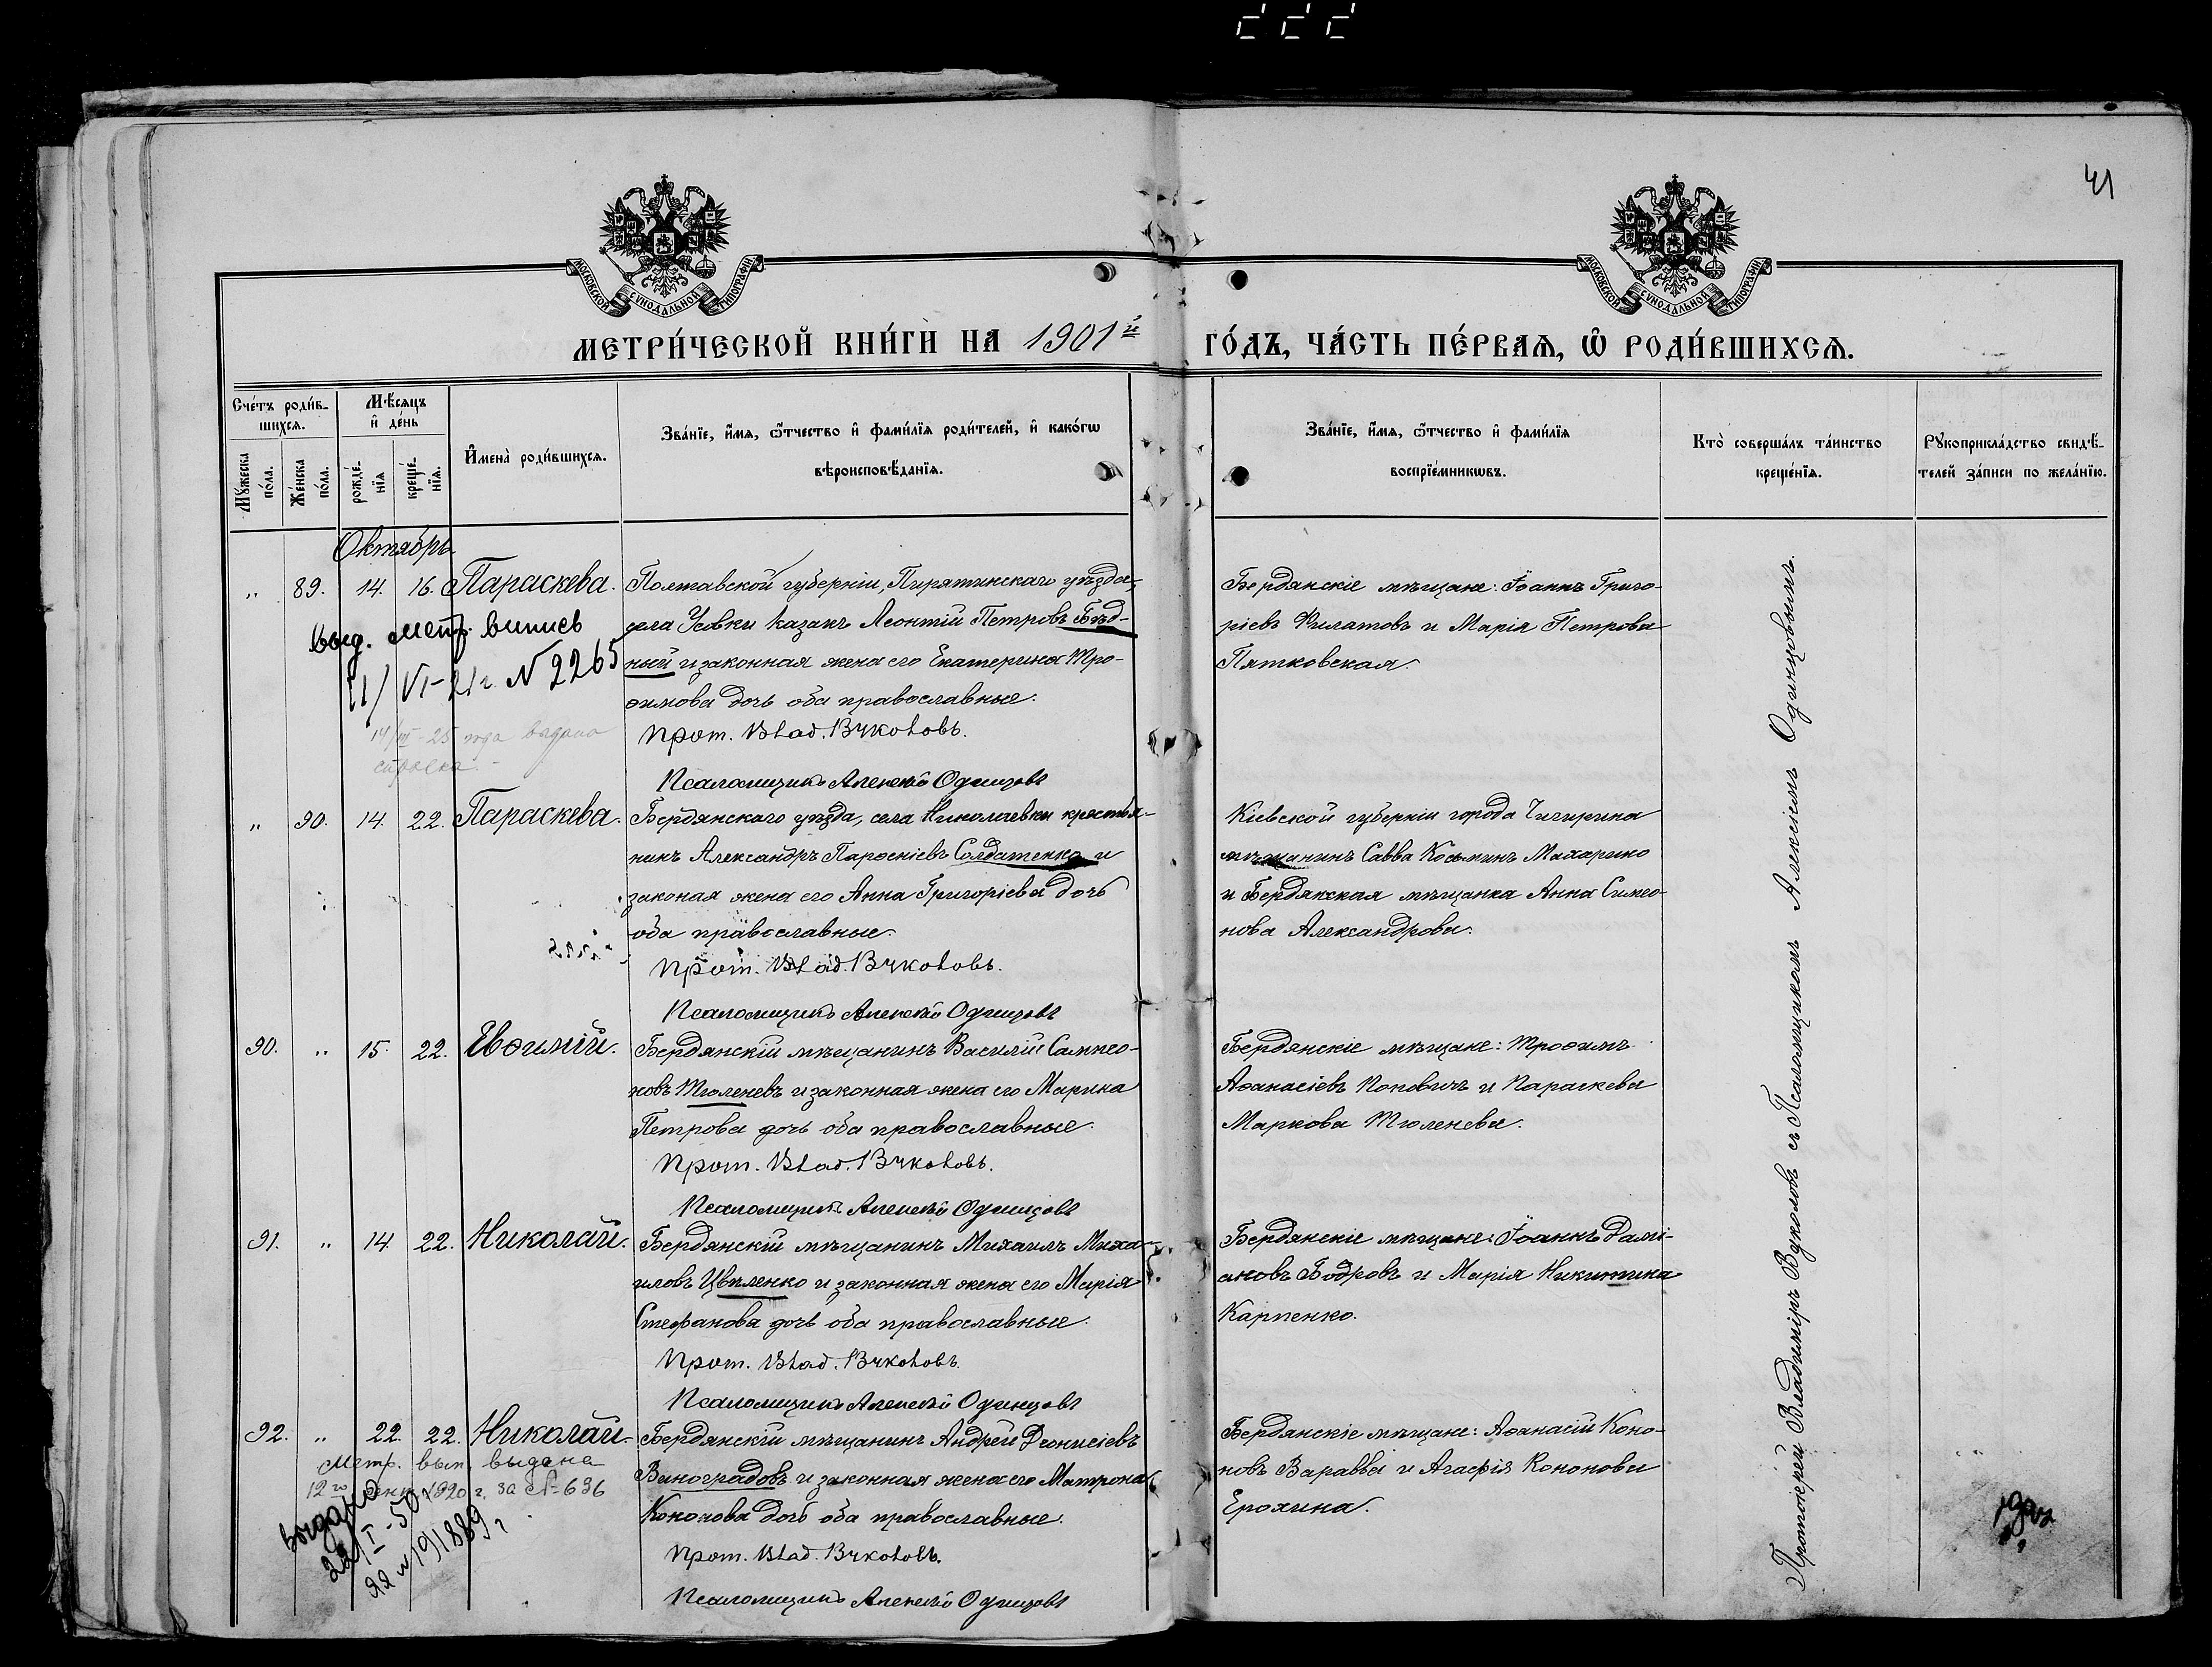 41
МОСКОВСКОЙ СУНОДАЛЬНОЙ ТИПОГРАФІИ
МОСКОВСКОЙ СУНОДАЛЬНОЙ ТИПОГРАФІИ
МЕТРИ́ЧЕСКОЙ КНИ́ГИ НА 1901й ГО́ДЪ, ЧА́СТЬ ПЕ́РВАѦ, Ѽ РОДИ́ВШИХСѦ.
Сче́тъ роди́в-
шихсѧ.
Мꙋ́жеска
по́ла.
Же́нска
по́ла.
Мѣ́сяцъ
и҆ де́нь
рожде́-
нїѧ
креще́-
нїѧ.
И҆мена̀ роди́вшихсѧ.
Зва́нїе, и҆́мѧ, ѻ҆́тчество и҆ фами́лїѧ роди́телей, и҆ како́гѡ
вѣроисповѣ́данїѧ.
Зва́нїе, и҆́мѧ, ѻ҆́тчество и҆ фами́лїѧ
воспрїе́мникѡвъ.
Кто̀ соверша́лъ та́инство
креще́нїѧ.
Рꙋкоприкла́дство свидѣ́-
телей за́писи по жела́нїю.
Октябрь
„ 89. 14. 16. Параскева.
Полтавской губерніи, Пирятинскаго уѣзда,
села Усовки казакъ Леонтій Петровъ Бѣд-
ный и законная жена его Екатерина Тро-
ѳимова дочь оба православные.
Прот. Влад. Вуколовъ.
Псаломщикъ Алексѣй Одинцовъ
Бердянскіе мѣщане: Іоаннъ Григо-
ріевъ Филатовъ и Марія Петрова
Пятковская.
выд. метр. выпись
11/VI-21 г. N 2265
14/III-25 года выдана
справка.
„ 90. 14. 22. Параскева.
Бердянскаго уѣзда, села Николаевки крестья-
нинъ Александръ Парѳеніевъ Солдатенко и
законая жена его Анна Григоріева дочь
оба православные.
Прот. Влад. Вуколовъ.
Псаломщикъ Алексѣй Одинцовъ
Кіевской губерніи города Чигирина
мѣщанинъ Савва Косьминъ Махарино
и Бердянская мѣщанка Анна Симео-
нова Александрова.
90. „ 15. 22. Евѳимій.
Бердянскій мѣщанинъ Василій Сампсо-
новъ Тюленевъ и законная жена его Марина
Петрова дочь оба православные.
Прот. Влад. Вуколовъ.
Псаломщикъ Алексѣй Одинцовъ
Бердянскіе мѣщане: Трофимъ
Аѳанасіевъ Поповичъ и Параскева
Маркова Тюленева.
91. „ 14. 22. Николай.
Бердянскій мѣщанинъ Михаилъ Миха-
иловъ Цвиленко и законная жена его Марія
Стефанова дочь оба православные.
Прот. Влад. Вуколовъ.
Псаломщикъ Алексѣй Одинцовъ
Бердянскіе мѣщане: Іоаннъ Дамі-
ановъ Бодровъ и Марія Никитина
Карпенко.
92. „ 22. 22. Николай.
Бердянскій мѣщанинъ Андрей Діонисіевъ
Виноградовъ и законная жена его Матрона
Кононова дочь оба православные.
Прот. Влад. Вуколовъ.
Псаломщикъ Алексѣй Одинцовъ
Бердянскіе мѣщане: Аѳанасій Коно-
новъ Варавва и Агафія Кононова
Ерохина.
Метр. вып. выдана
12го 1920 г. за №636
выдано
22/I-50 г.
191889
Протоіерей Владиміръ Вуколовъ съ Псаломщикомъ Алексіемъ Одинцовымъ.